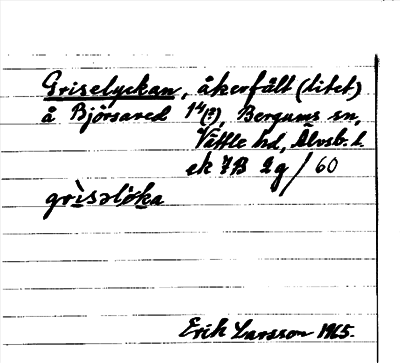 Griselyckan, åkerfält (litet)
å Björsared 1⁴(?), Bergums sn,
Vättle hd, Älvsb. l.
ek 7B 2g/60
grìsəlỳka
Erik Larsson 1965.